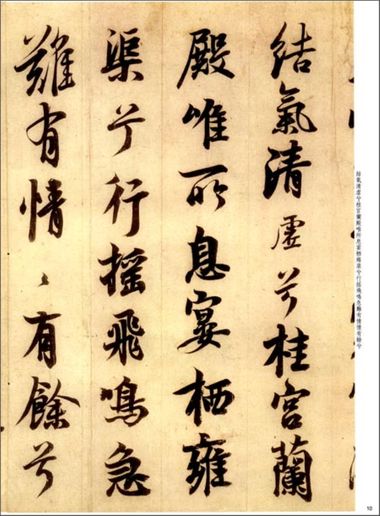 結氣清虛兮桂宮蘭
殿唯所息宴栖雍
渠兮行摇飛鳴急
難有情〻有餘兮
結氣清虛兮桂宮蘭殿唯所息宴栖雍渠兮行摇飛鳴急難有情情有餘兮
10